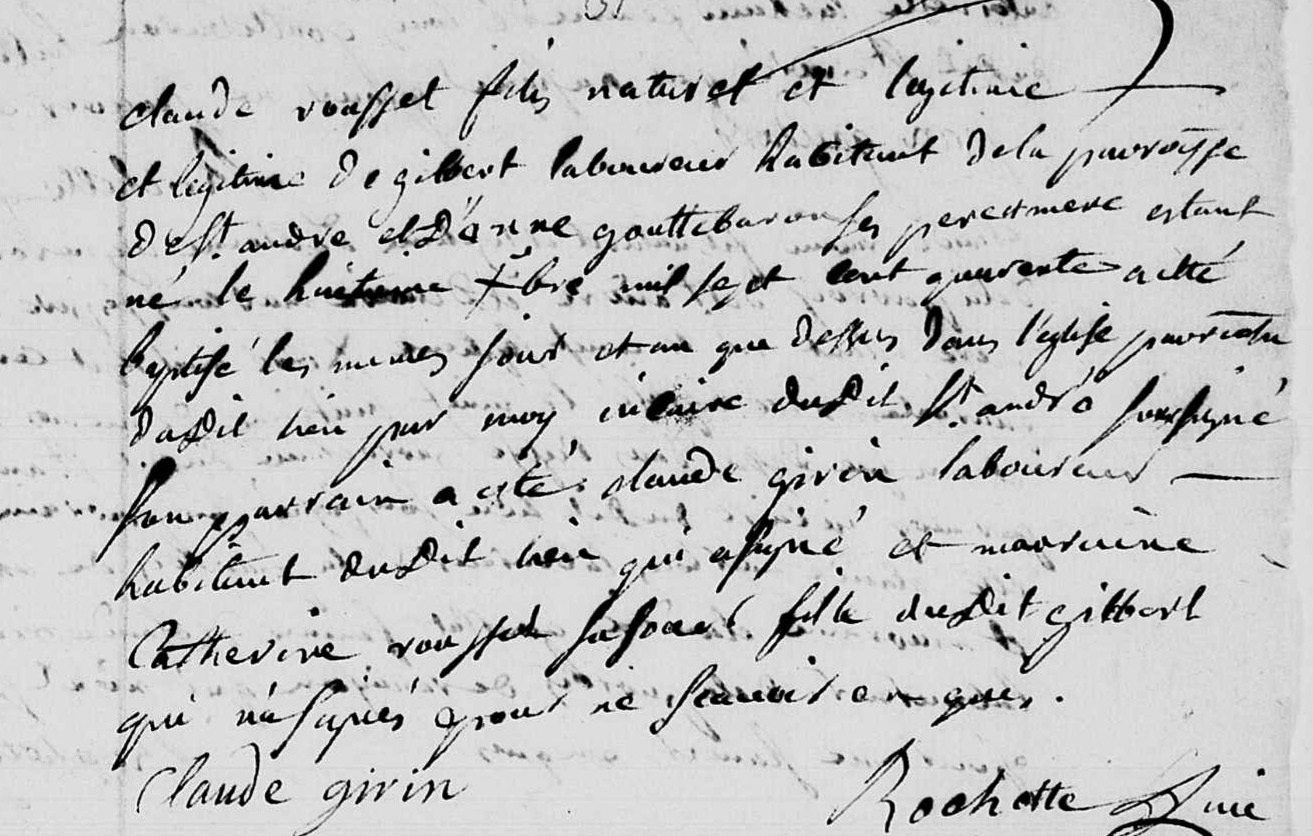 claude rousset fils naturel et legitime
et legitime de gilbert laboureur habitant dela parroisse
de st. andre et d'anne gouttebaron ses pere et mere estant
né le huitieme xbre mil sept cent quarente a été
baptisé les memes jour et an que dessus dans l'eglise parroialle
dudit lieu par moy vicaire dudit st. andré soussigné
son parrain a esté claude girin laboureur
habitant dudit lieu qui a signé et marraine
Catherine rousset sa soeur fille dudit gilbert
qui n'a signés pour ne scauoir enquis.
Claude girin
Rochette